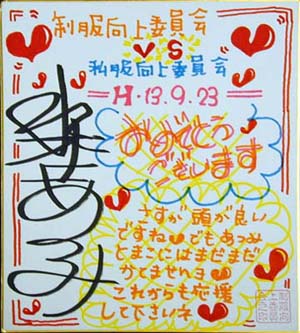 制服向上委員会
VS
私服向上委員会
H.13.9.23
おめでとう
ございます
さすが頭が良い
ですね♥でもあっみ
とまこにはまだまだ
かてませんヨ♥
これからも応援
して下さいネ